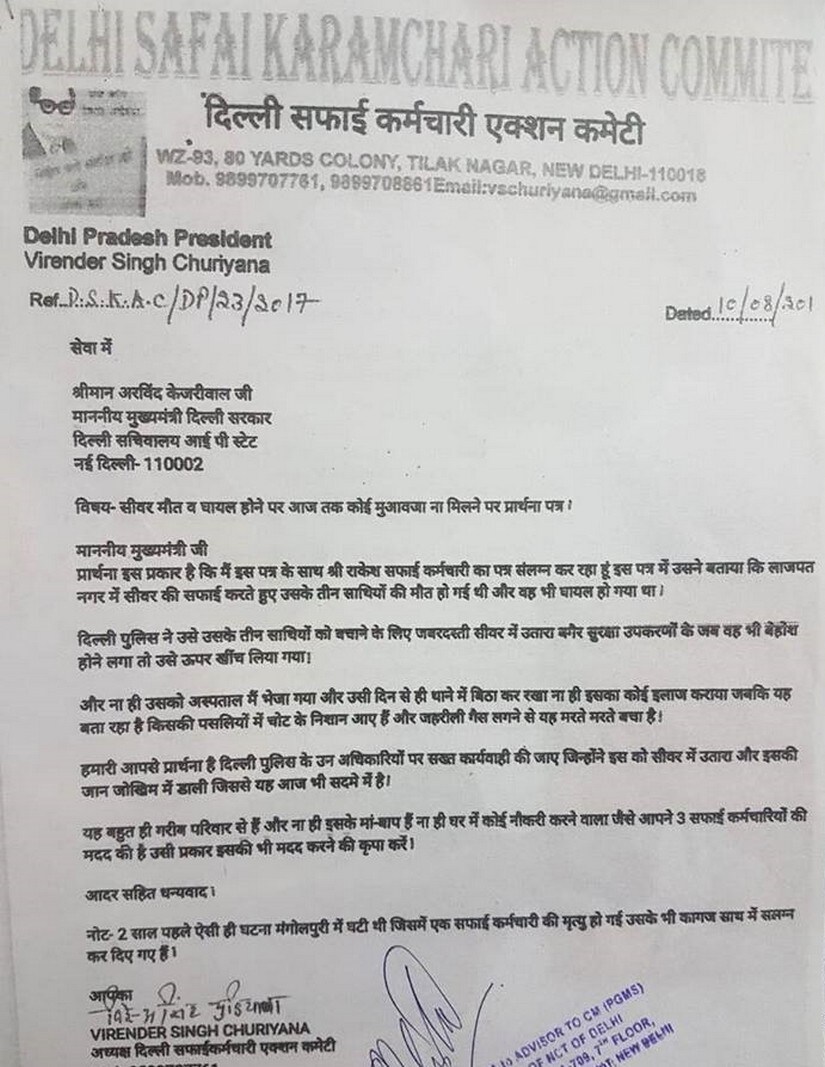 DELHI SAFAI KARAMCHARI ACTION COMMITE
दिल्ली सफाई कर्मचारी एक्शन कमेटी
WZ-93, 80 YARDS COLONY, TILAK NAGAR, NEW DELHI-110018
Mob. 9899707761, 9899708861Email:vschuriyana@gmail.com
Delhi Pradesh President
Virender Singh Churiyana
Ref..D.S.K.A.C/DP/23/2017
Dated....10/08/201
सेवा में
श्रीमान अरविंद केजरीवाल जी
माननीय मुख्यमंत्री दिल्ली सरकार
दिल्ली सचिवालय आई पी स्टेट
नई दिल्ली- 110002
विषय- सीवर मौत व घायल होने पर आज तक कोई मुआवजा ना मिलने पर प्रार्थना पत्र।
माननीय मुख्यमंत्री जी
प्रार्थना इस प्रकार है कि मैं इस पत्र के साथ श्री राकेश सफाई कर्मचारी का पत्र संलग्न कर रहा हूं इस पत्र में उसने बताया कि लाजपत
नगर में सीवर की सफाई करते हुए उसके तीन साथियों की मौत हो गई थी और वह भी घायल हो गया था।
दिल्ली पुलिस ने उसे उसके तीन साथियों को बचाने के लिए जबरदस्ती सीवर में उतारा बगैर सुरक्षा उपकरणों के जब वह भी बेहोश
होने लगा तो उसे ऊपर खींच लिया गया।
और ना ही उसको अस्पताल मैं भेजा गया और उसी दिन से ही थाने में बिठा कर रखा ना ही इसका कोई इलाज कराया जबकि यह
बता रहा है किसकी पसलियों में चोट के निशान आए हैं और जहरीली गैस लगने से यह मरते मरते बचा है।
हमारी आपसे प्रार्थना है दिल्ली पुलिस के उन अधिकारियों पर सख्त कार्यवाही की जाए जिन्होंने इस को सीवर में उतारा और इसकी
जान जोखिम में डाली जिससे यह आज भी सदमे में है।
यह बहुत ही गरीब परिवार से हैं और ना ही इसके मां-बाप हैं ना ही घर में कोई नौकरी करने वाला जैसे आपने 3 सफाई कर्मचारियों की
मदद की है उसी प्रकार इसकी भी मदद करने की कृपा करें।
आदर सहित धन्यवाद।
नोट- 2 साल पहले ऐसी ही घटना मंगोलपुरी में घटी थी जिसमें एक सफाई कर्मचारी की मृत्यु हो गई उसके भी कागज साथ में सलग्न
कर दिए गए हैं।
आपका
VIRENDER SINGH CHURIYANA
अध्यक्ष दिल्ली सफाईकर्मचारी एक्शन कमेटी
to ADVISOR TO CM (PGMS)
OF NCT OF DELHI
-709, 7TH FLOOR,
NEW DELHI